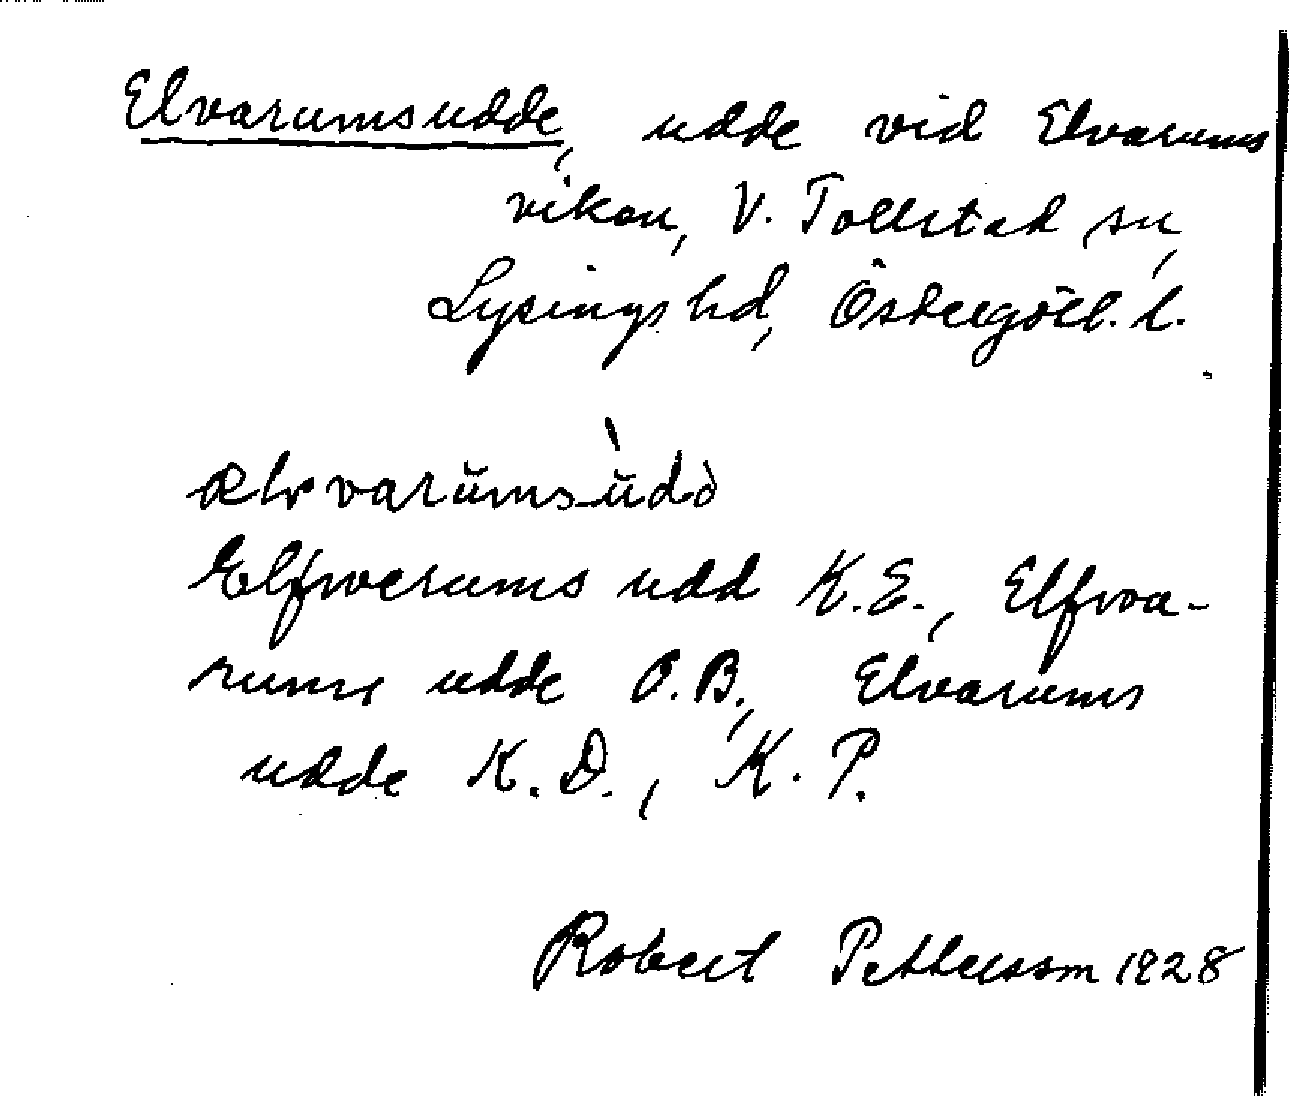 Elvarumsudde, udde vid Elvarums
viken, V. Tollstad sn,
Lysings hd, Östergötl. l.
ælvvarŭmsŭdò
Elfwerums udd K.E., Elfwa-
rums udde O.B., Elvarums
udde K.D., K.P.
Robert Pettersson 1928